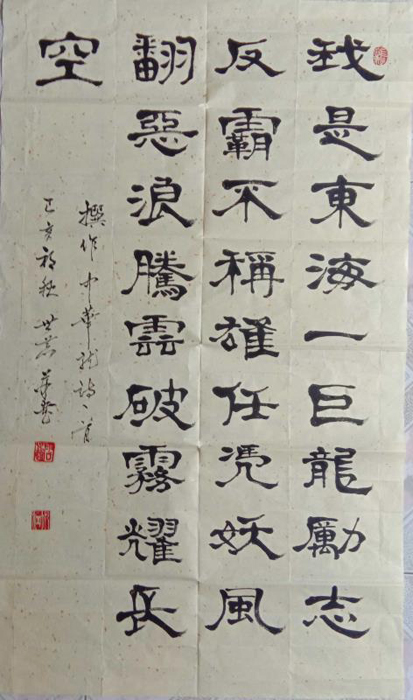 我是東海一巨龍勵志
反霸不稱雄任凭妖風
翻惡浪騰雲破霧耀長
空
撰作中華龍詩一首